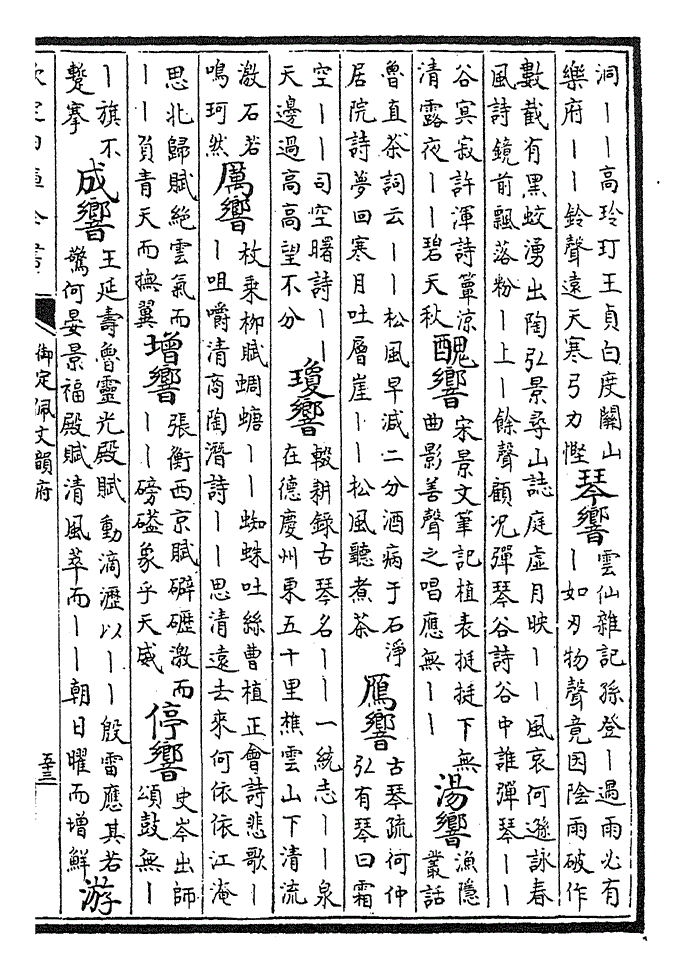 洞丨丨高玲玎王貞白度關山
樂府丨丨鈴聲遠天寒弓力慳
琴響
雲仙雜記孫登丨過雨必有
丨如刃物聲竟因陰雨破作
數截有黑蛟湧出陶弘景尋山誌庭虛月映丨丨風哀何遜詠春
風詩鏡前飄落粉丨上丨餘聲顧况彈琴谷詩谷中誰彈琴丨丨
谷冥寂許渾詩簟涼
清露夜丨丨碧天秋
醜響
宋景文筆記植表挺挺下無
曲影善聲之唱應無丨丨
湯響
漁隱
叢話
魯直茶詞云丨丨松風早減二分酒病于石淨
居院詩夢回寒月吐層崖丨丨松風聽煮茶
鴈響
古琴疏何仲
弘有琴曰霜
空丨丨司空曙詩丨丨
天邊過高高望不分
瓊響
輟耕錄古琴名丨丨一統志丨丨泉
在德慶州東五十里樵雲山下清流
激石若
鳴珂然
厲響
枚乗柳賦蜩螗丨丨蜘蛛吐絲曹植正會詩悲歌丨
丨咀嚼清商陶潛詩丨丨思清遠去來何依依江淹
思北歸賦絕雲氣而
丨丨負青天而撫翼
增響
張衡西京賦礔礰激而
丨丨磅礚象乎天威
停響
史岑出師
頌鼓無丨
丨旗不
蹔搴
成響
王延壽魯靈光殿賦動滴瀝以丨丨殷雷應其若
驚何晏景福殿賦清風萃而丨丨朝日曜而增鮮
游
欽定四庫全書
御定佩文韻府
五三